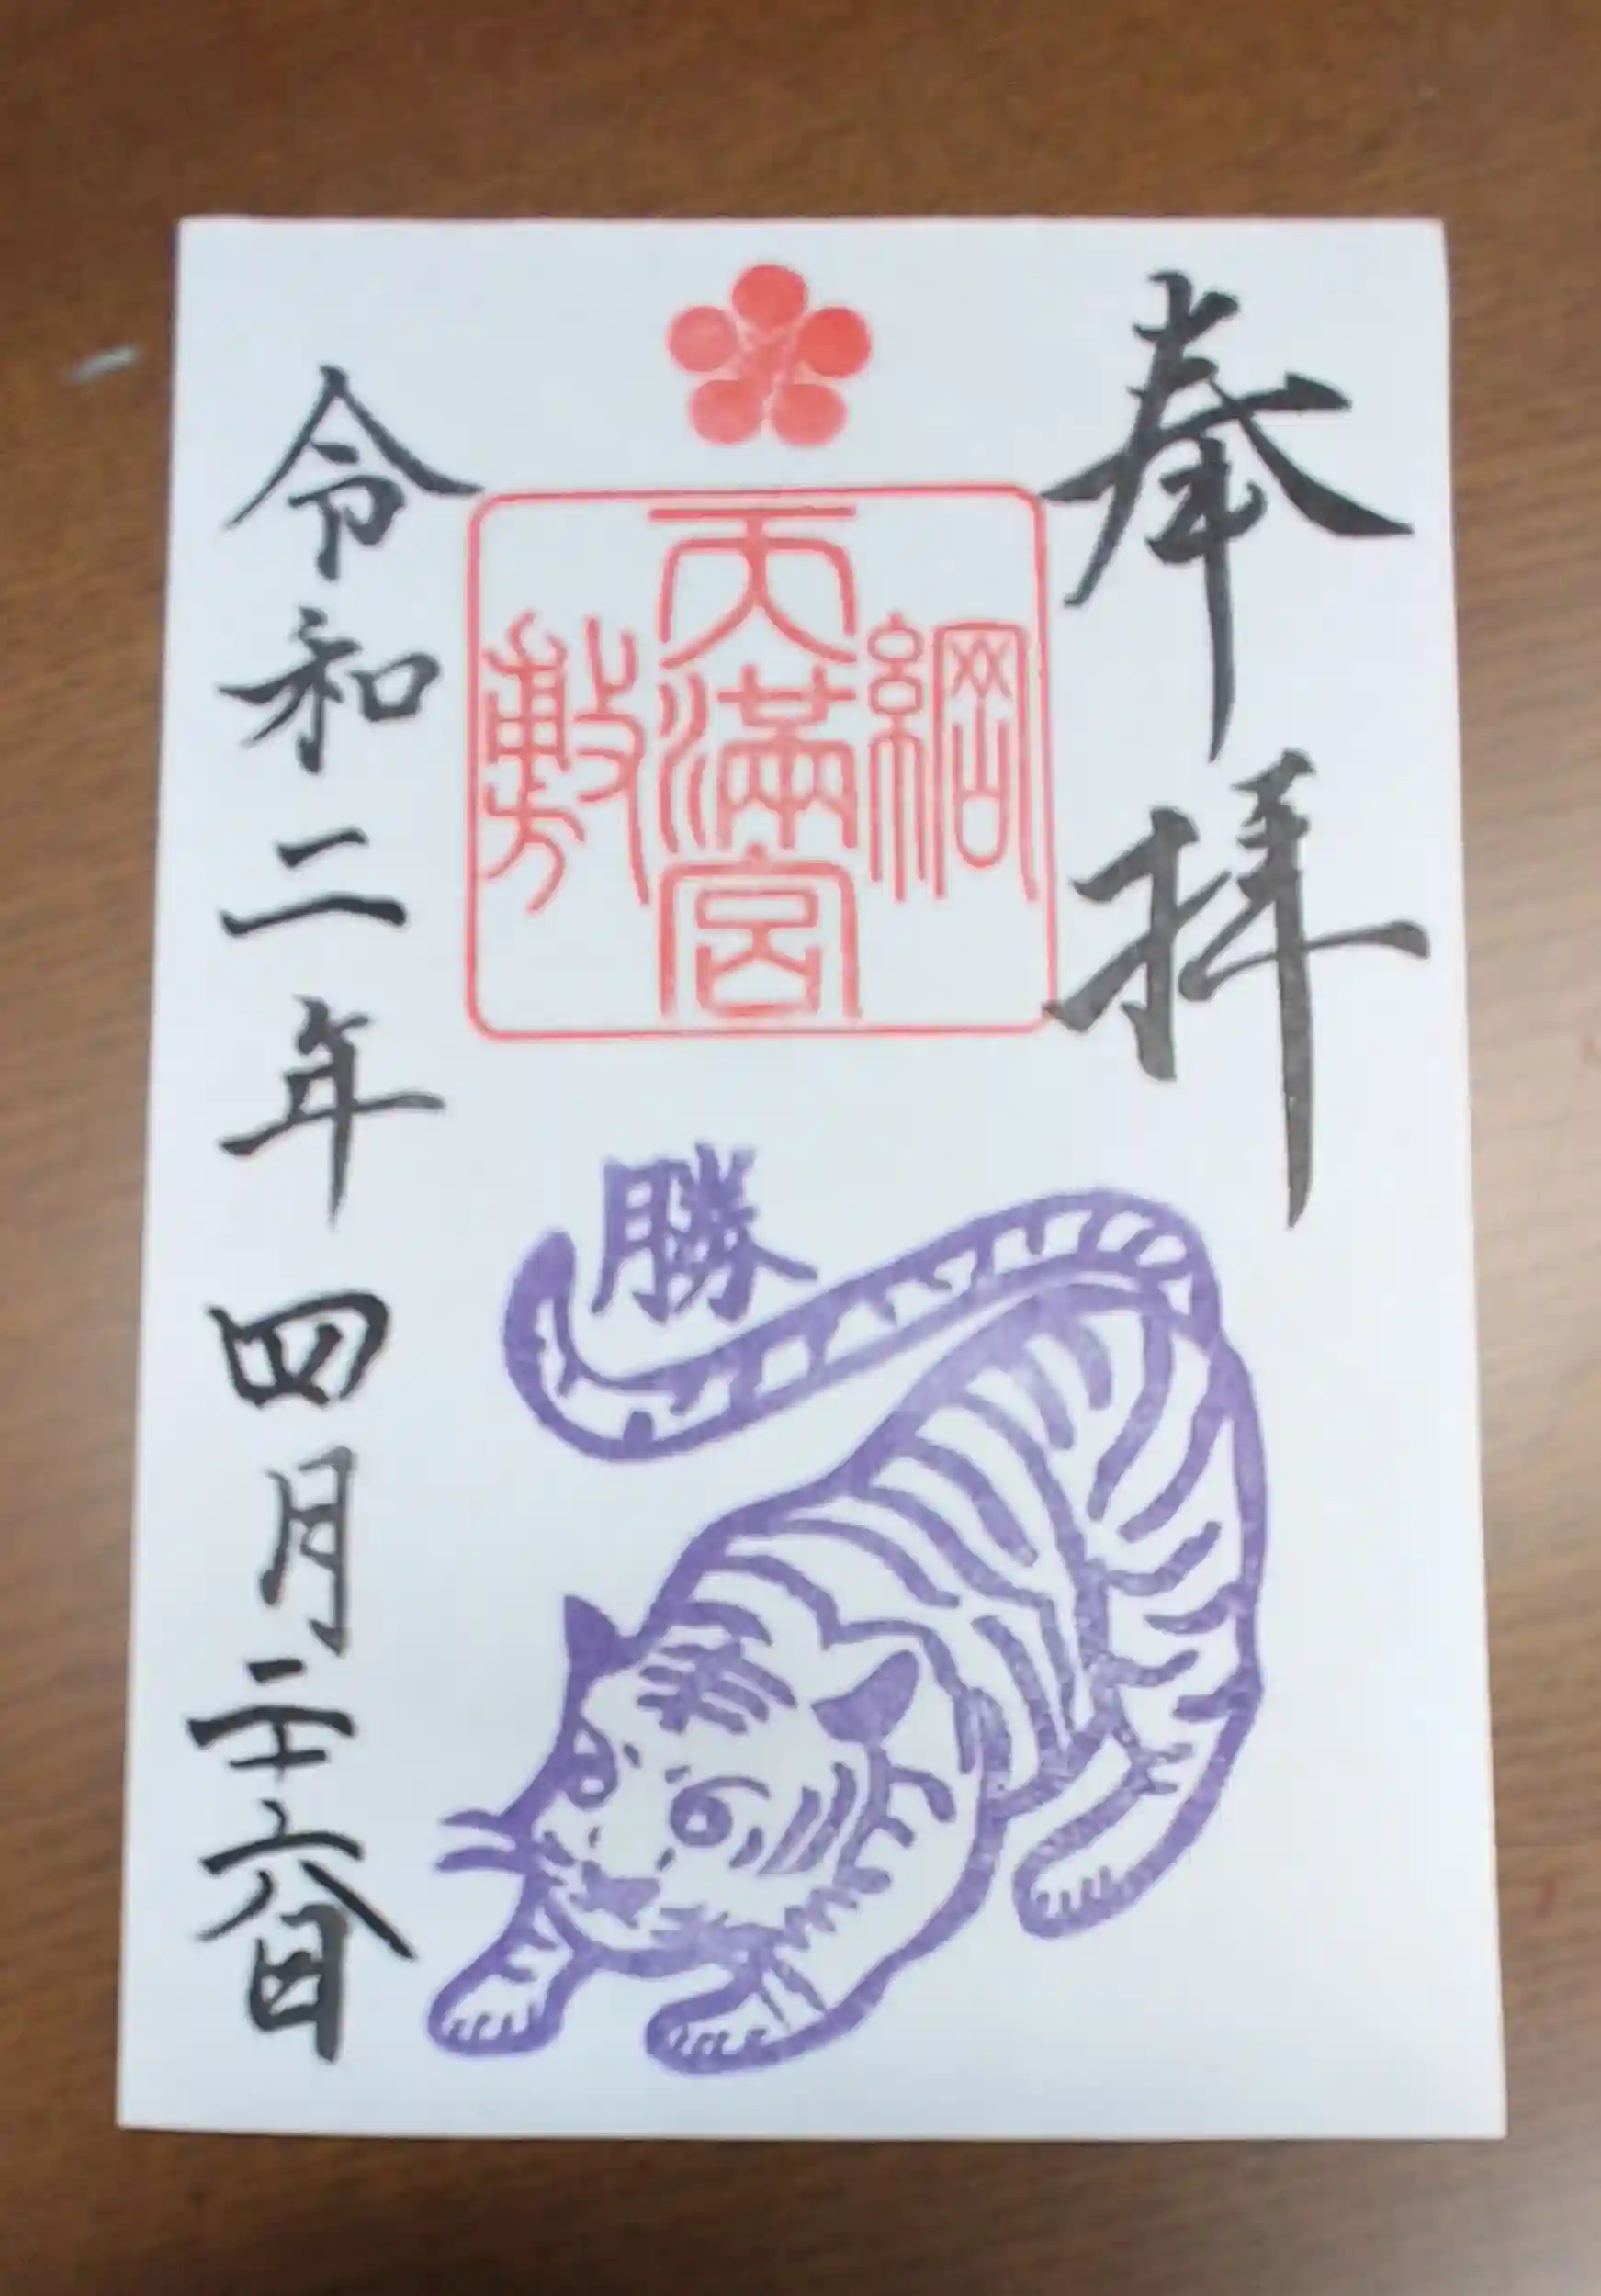 奉拝
綱
天満宮
敷
勝
令和二年四月二十六日